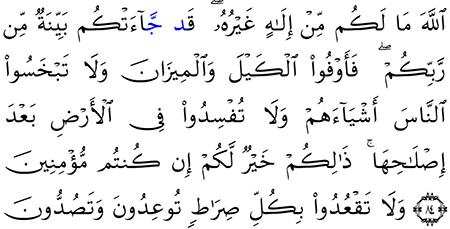 ٱللَّهَ مَا لَكُم مِّنْ إِلَـٰهٍ غَيْرُهُۥ ۖ قَد جَّآءَتْكُم بَيِّنَةٌ مِّن
رَّبِّكُمْ ۖ فَأَوْفُوا۟ ٱلْكَيْلَ وَٱلْمِيزَانَ وَلَا تَبْخَسُوا۟
ٱلنَّاسَ أَشْيَآءَهُمْ وَلَا تُفْسِدُوا۟ فِى ٱلْأَرْضِ بَعْدَ
إِصْلَـٰحِهَا ۚ ذَٰلِكُمْ خَيْرٌ لَّكُمْ إِن كُنتُم مُّؤْمِنِينَ
﴿٨٤﴾ وَلَا تَقْعُدُوا۟ بِكُلِّ صِرَاطٍ تُوعِدُونَ وَتَصُدُّونَ